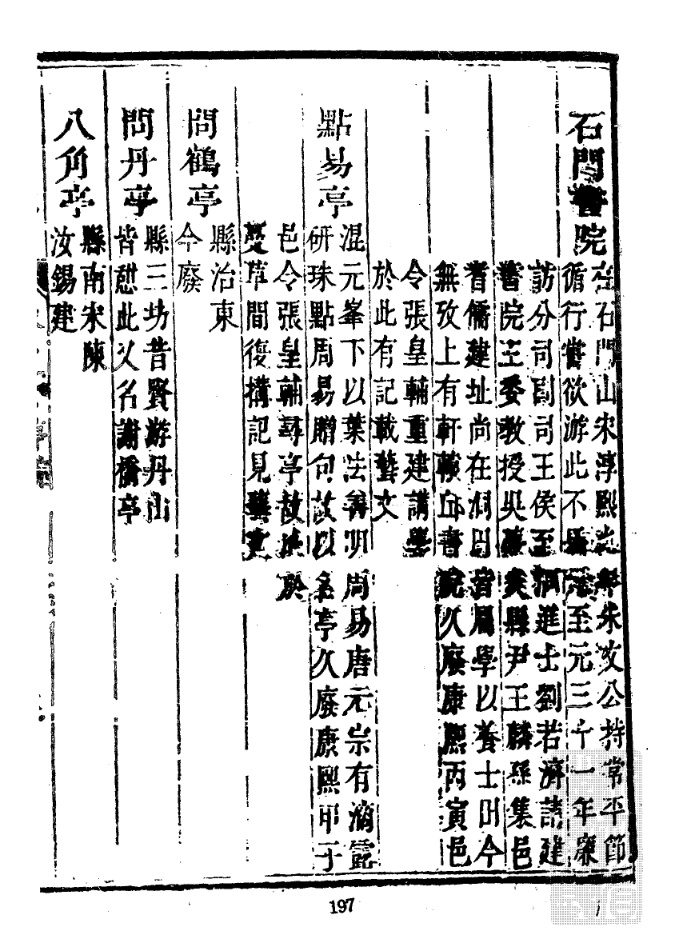 石門書院
在石門山宋淳熙 朱文公持常平節
循行嘗欲游此不 至元三十一年廉
訪分司副司王侯至 進士劉若濟請建
書院王委教授吳 縣尹王麟孫集邑
耆儒建址尚在 田皆屬學以養士田今
無攷上有軒轅丘書院久廢康熙丙寅邑
令張皇輔重建講學
於此有記載藝文
點易亭
混元峯下以葉法善明周易唐元宗有滴露
研珠點周易贈句故以名亭久廢康熙甲子
邑令張皇輔尋亭故 於
蔓草間復搆記見藝文
問鶴亭
縣治東
今廢
問丹亭
縣三坊昔賢游丹山
皆憇此以名謝橋亭
八角亭
縣南宋陳
汝錫建
197